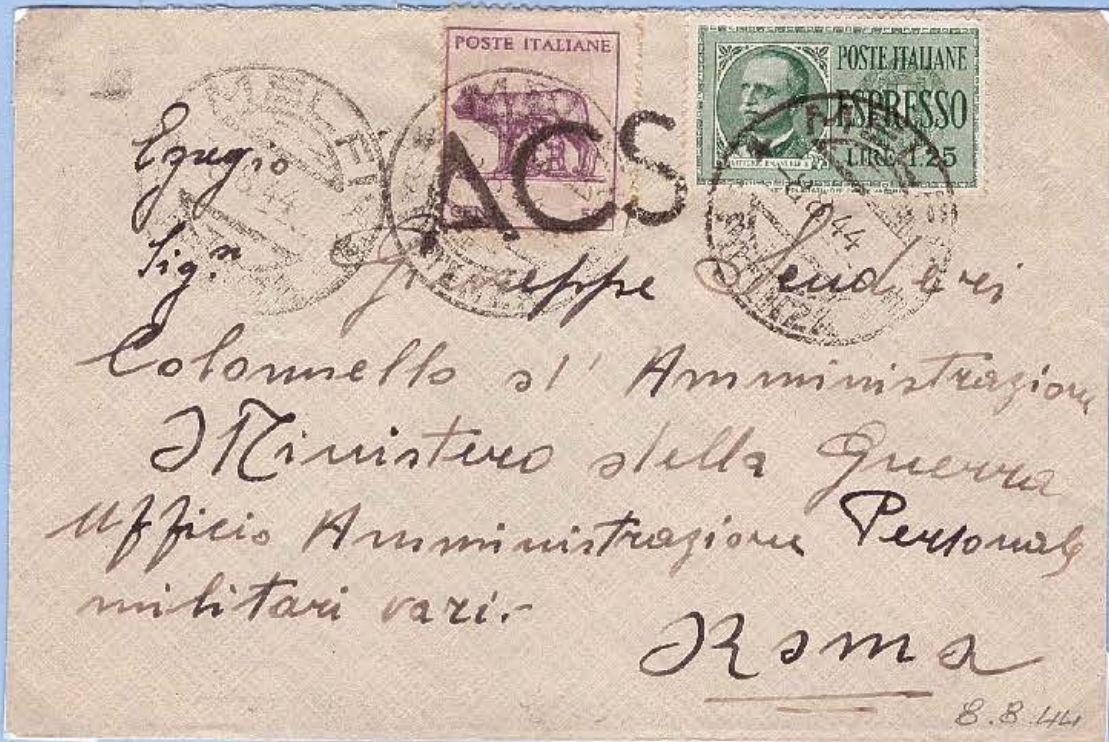 POSTE ITALIANE
POSTE ITALIANE
ESPRESSO
LIRE 1.25
ACS
MELFI
44
Egregio
Sig.n Giuseppe
Colonnello d'Amministrazione
Ministero della Guerra
Ufficio Amministrazione Personale
militari vari.-
Roma
8.8.44